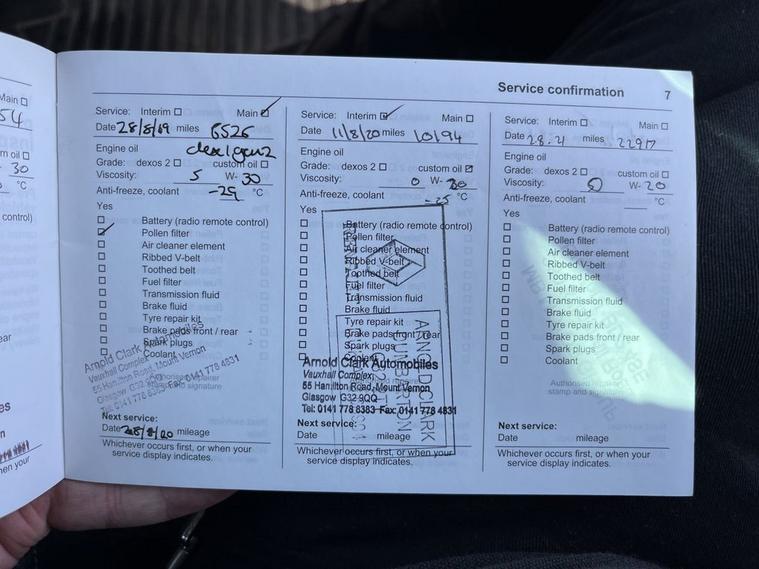 Service confirmation 7
Service: Interim ☐ Main ☑
Date 28/8/19 miles 6526
Engine oil dex1gen2
Grade: dexos 2 ☐ custom oil ☐
Viscosity: 5 W- 30
Anti-freeze, coolant -29 °C
Yes
☐ Battery (radio remote control)
☑ Pollen filter
☐ Air cleaner element
☐ Ribbed V-belt
☐ Toothed belt
☐ Fuel filter
☐ Transmission fluid
☐ Brake fluid
☐ Tyre repair kit
☐ Brake pads front / rear
☐ Spark plugs
☐ Coolant
Arnold Clark Automobiles
Vauxhall Complex
55 Hamilton Road, Mount Vernon
Glasgow G32 9QQ
Tel: 0141 778 8383 Fax: 0141 778 4831
Next service:
Date 28/8/20 mileage
Whichever occurs first, or when your
service display indicates.
Service: Interim ☑ Main ☐
Date 11/8/20 miles 10194
Engine oil
Grade: dexos 2 ☐ custom oil ☑
Viscosity: 0 W- 20
Anti-freeze, coolant -25 °C
Yes
☐ Battery (radio remote control)
☐ Pollen filter
☐ Air cleaner element
☐ Ribbed V-belt
☐ Toothed belt
☐ Fuel filter
☐ Transmission fluid
☐ Brake fluid
☐ Tyre repair kit
☐ Brake pads front / rear
☐ Spark plugs
☐ Coolant
ARNOLD CLARK
DUMBARTON
Arnold Clark Automobiles
Vauxhall Complex
55 Hamilton Road, Mount Vernon
Glasgow G32 9QQ
Tel: 0141 778 8383 Fax: 0141 778 4831
Next service:
Date mileage
Whichever occurs first, or when your
service display indicates.
Service: Interim ☐ Main ☐
Date 28.21 miles 22917
Engine oil
Grade: dexos 2 ☐ custom oil ☐
Viscosity: 5 W- 20
Anti-freeze, coolant °C
Yes
☐ Battery (radio remote control)
☐ Pollen filter
☐ Air cleaner element
☐ Ribbed V-belt
☐ Toothed belt
☐ Fuel filter
☐ Transmission fluid
☐ Brake fluid
☐ Tyre repair kit
☐ Brake pads front / rear
☐ Spark plugs
☐ Coolant
Authorised repairer
stamp and signature
Next service:
Date mileage
Whichever occurs first, or when your
service display indicates.